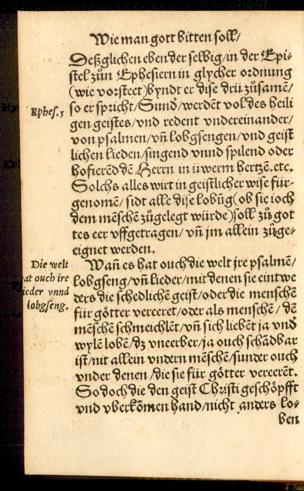 Wie man gott bitten soll/
Deßglichen eben der selbig/in der Epi-
stel zůn Ephesiern in glycher ordnung
(wie vorsteet) byndt er dise drü zůsamẽ/
Ephes. 5
so er spricht/Sund/werdẽt vol des heili
gen geistes/vnd redent vndereinander/
von psalmen/vñ lobgsengen/vnd geist
lichen lieden/singend vnnd spilend oder
hofierẽd dẽ Herrn in üwerm hertzẽ.etc.
Solchs alles wirt in geistlicher wise für-
genomẽ/sidt alle dise lobũg(ob sie ioch
dem mẽschẽ zůgelegt würde)soll zů got
tes eer vffgetragen/vñ jm allein zůge-
eignet werden.
Die welt
at ouch ire
ieder vnnd
lobgseng.
Wañ es hat ouch die welt jre psalmẽ/
lobgseng/vñ lieder/mit denen sie eintwe
ders die schedlichẽ geist/oder die menschẽ
für götter vereeret/oder als menschẽ/dẽ
mẽschẽ schmeichlẽt/vñ sich liebẽt ja vnd
wylẽ lobẽ/dz vneerber/ja ouch schädbar
ist/nit allein vndern mẽschẽ/sunder ouch
vnder denen/die sie für götter vereerẽt.
So doch die den geist Christi geschöpfft
vnd vberkõmen hand/nicht anders lo-
ben